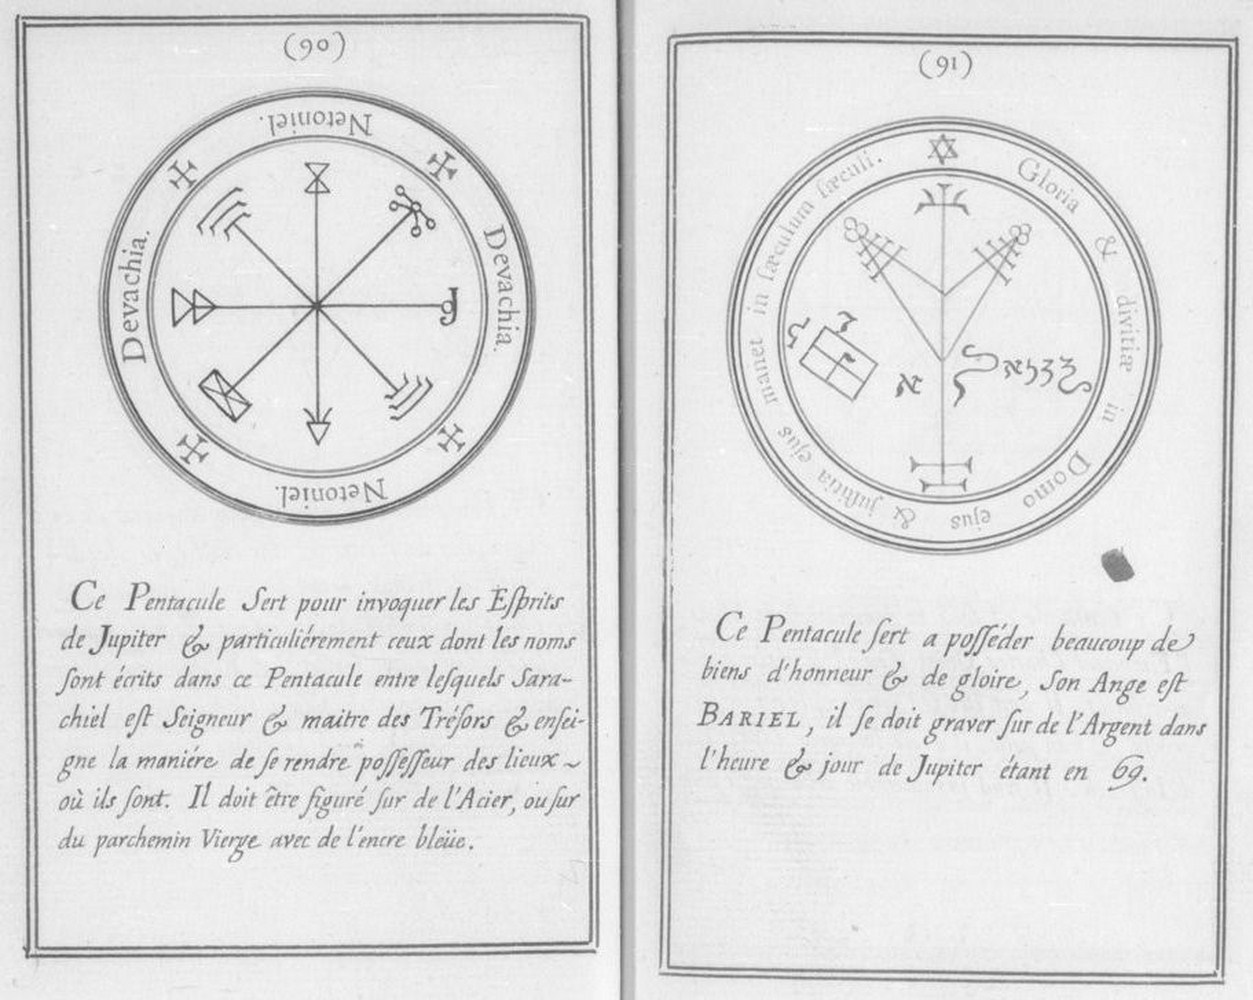 (90)
Netoniel.
Devachia.
Devachia.
Netoniel.
Ce Pentacule Sert pour invoquer les Eſprits
de Jupiter & particuliérement ceux dont les noms
ſont écrits dans ce Pentacule entre leſquels Sara-
chiel eſt Seigneur & maitre des Tréſors & enſei-
gne la maniére de ſe rendre poſſeſſeur des lieux ~
où ils ſont. Il doit être figuré ſur de l'Acier, ou ſur
du parchemin Vierge avec de l'encre bleüe.
(91)
Gloria & divitiæ in Domo ejus & juſtitia ejus manet in ſæculum ſæculi.
Ce Pentacule ſert a poſſéder beaucoup de
biens d'honneur & de gloire, Son Ange eſt
BARIEL, il ſe doit graver ſur de l'Argent dans
l'heure & jour de Jupiter étant en 69.